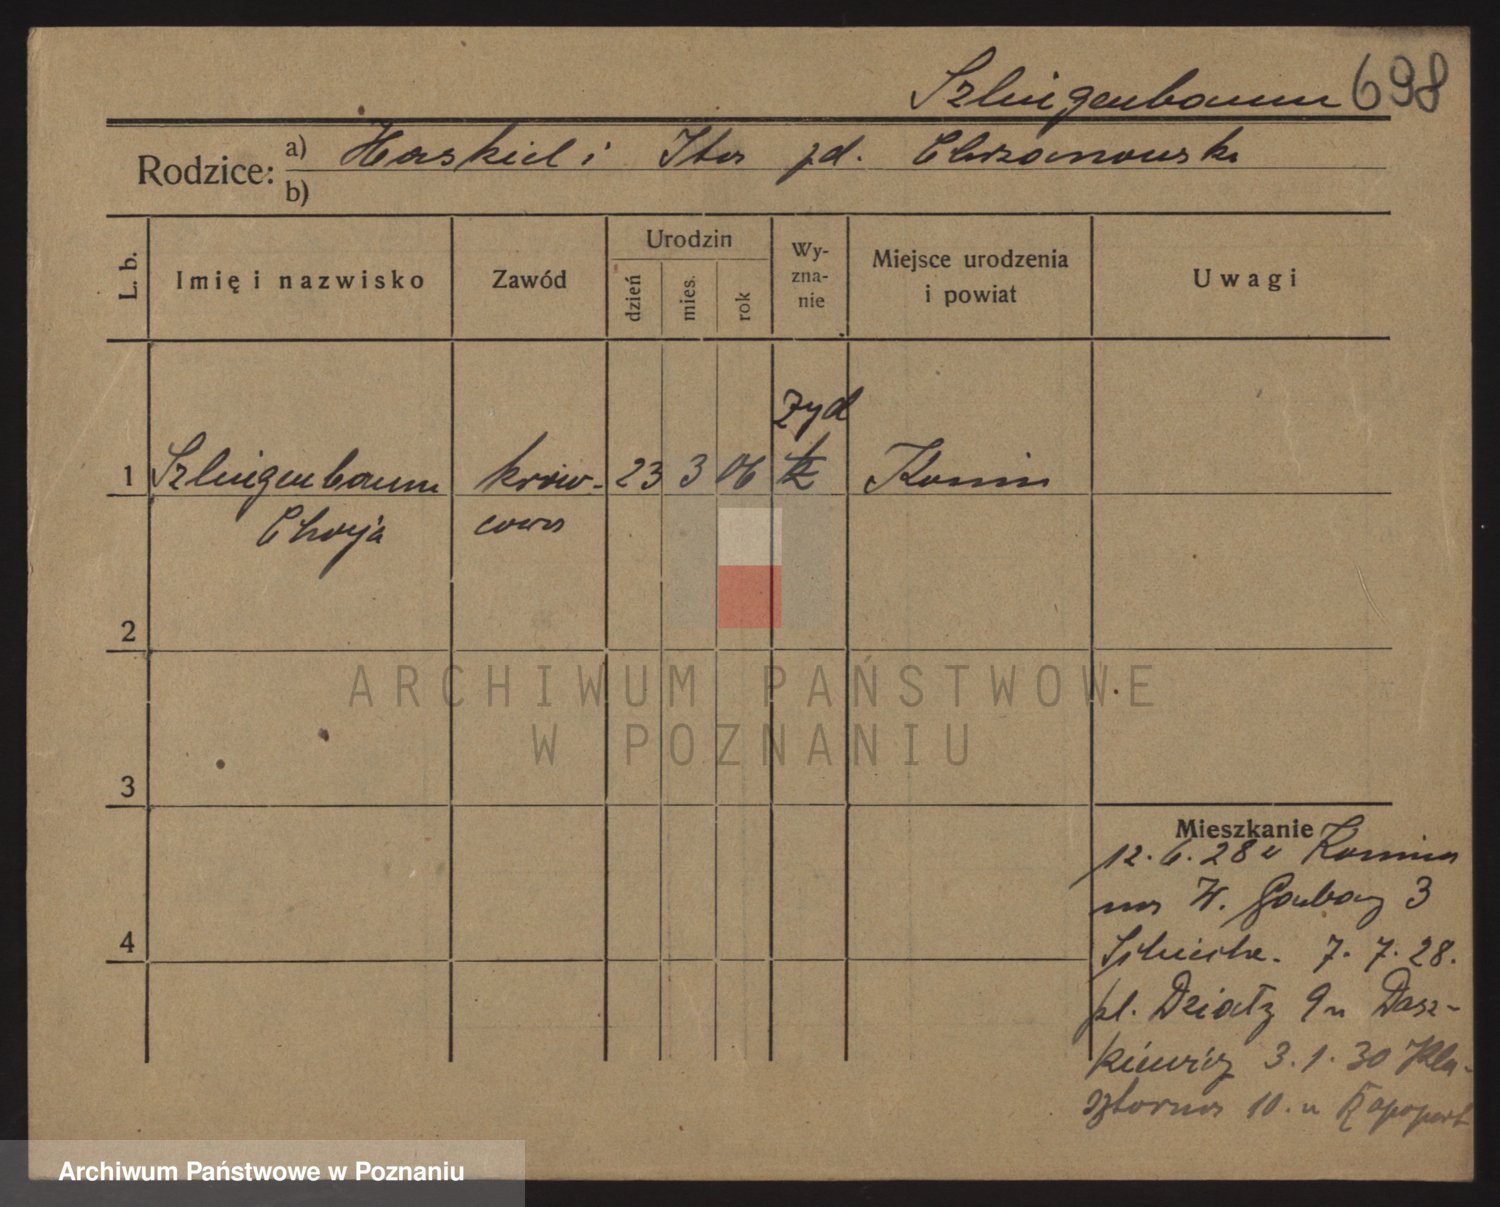 Szlingenbaum 698
Rodzice: a) Haskiel i Ita zd. Chrzanowska
b)
L. b. Imię i nazwisko Zawód Urodzin dzień mies. rok Wy-zna-nie Miejsce urodzenia i powiat Uwagi
żyd
1 Szlingenbaum kraw- 23 3 06 Konin
Chaja cowa
2
ARCHIWUM PAŃSTWOWE
W POZNANIU
3
Mieszkanie
12. 6. 28 Konina
na W. Garbary 3
7. 7. 28.
pl. Działy 9 u Dasz-
kiewicz 3. 1. 30 Kla-
4
sztorna 10. u Rapoport
Archiwum Państwowe w Poznaniu